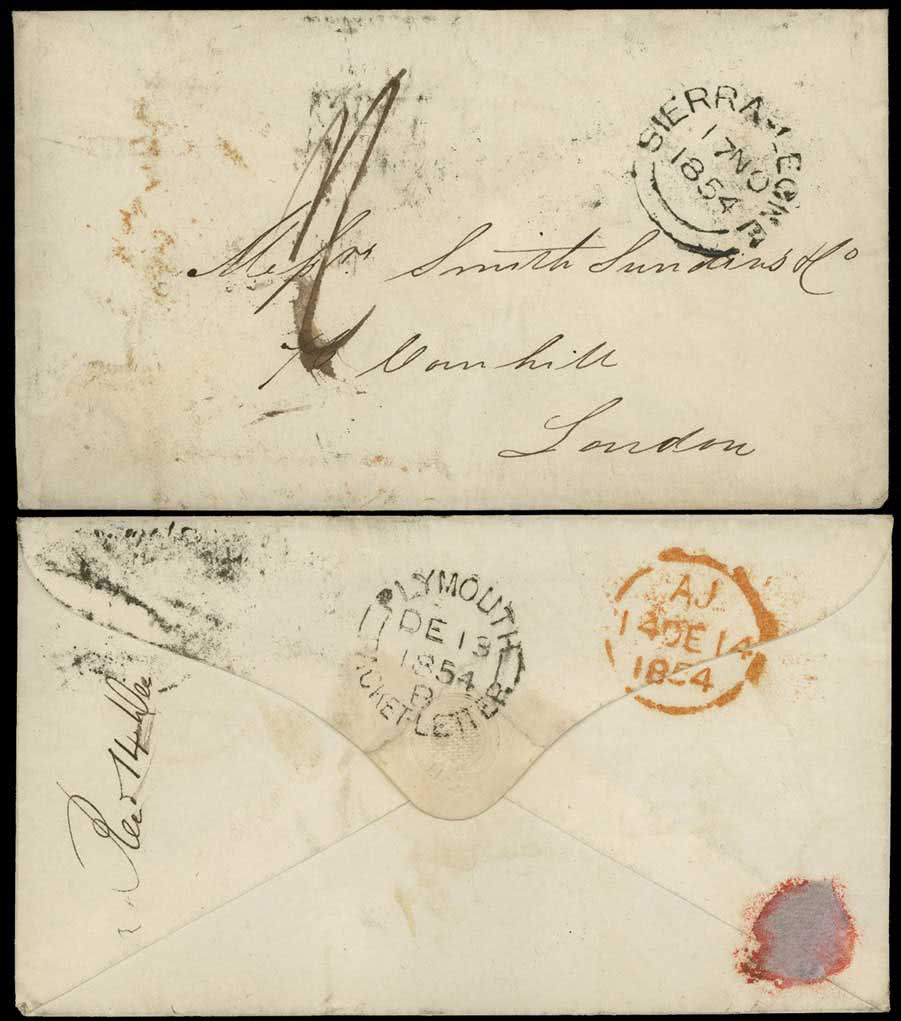 SIERRA-LEONE
17 NO
1854
Messrs Smith Sundius & Co
Cornhill
London
PLYMOUTH
DE 13
1854
B
PACKET-LETTER
AJ
14 DE 14
1854
Recd 14 Dec